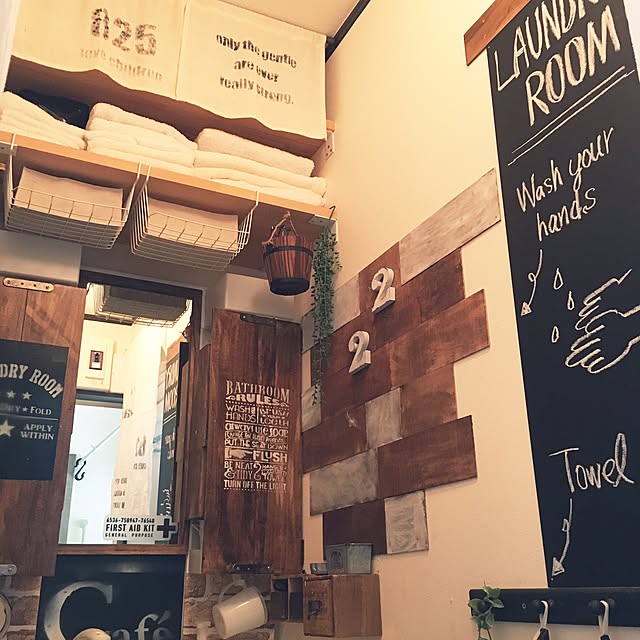 A25
love children
only the gentle
are ever
really strong.
LAUNDRY
ROOM
Wash your
hands
Towel
2
2
DRY ROOM
FOLD
APPLY
WITHIN
BATHROOM
RULES
WASH YOUR
HANDS
FLUSH
BE NEAT
& TIDY
TURN OFF THE LIGHT
6536-758967-76548
FIRST AID KIT
GENERAL PURPOSE
Café